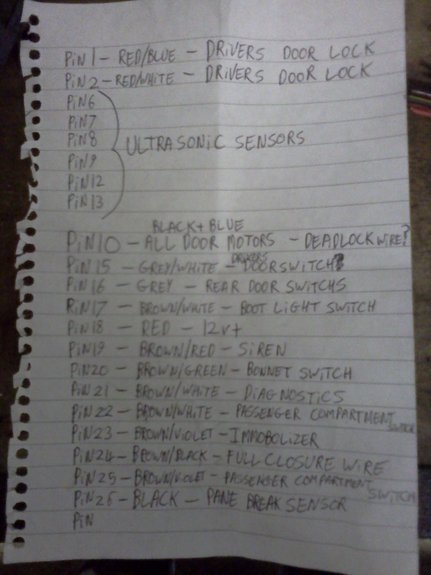 PiN 1 - RED/BLUE - DRIVERS DOOR LOCK
PiN 2 - RED/WHITE - DRIVERS DOOR LOCK
PiN6
PiN7
PiN8
PiN9
PiN12
PiN13
ULTRASONiC SENSORS
BLACK + BLUE
PiN10 - ALL DOOR MOTORS - DEADLOCK WiRE?
PiN 15 - GREY/WHITE - DRIVERS DOORSWiTCH?
PiN 16 - GREY - REAR DOOR SWiTCHS
PiN17 - BROWN/WHITE - BOOT LIGHT SWiTCH
PiN 18 - RED - 12v+
PiN19 - BROWN/RED - SiREN
PiN20 - BROWN/GREEN - BONNET SWiTCH
PiN 21 - BROWN/WHITE - DiAGNOSTiCS
PiN 22 - BROWN/WHITE - PASSENGER COMPARTMENT SWiTCH
PiN23 - BROWN/ViOLET - IMMOBOLiZER
PiN24 - BROWN/BLACK - FULL CLOSURE WiRE
PiN25 - BROWN/ViOLET - PASSENGER COMPARTMENT SWiTCH
PiN26 - BLACK - PANE BREAK SENSOR
PiN